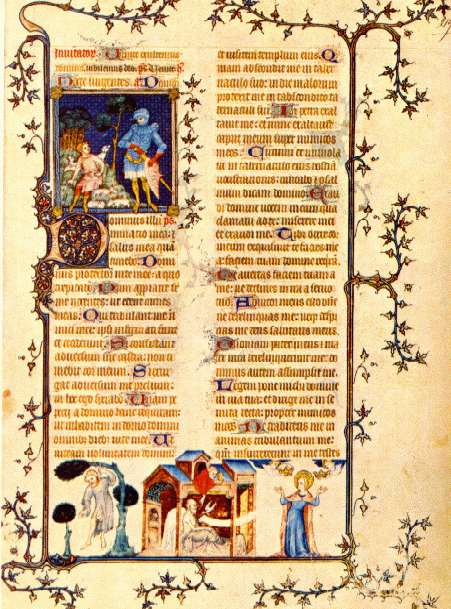 Invitator. Venite exultemus
domino, iubilemus deo. ps. Venite. h.
Nocte surgentes. a. Domin
Dominus illu ps.
minatio mea: et
salus mea quē
timebo. Domi
nus protector vite mee: a quo
trepidabo. Dum appropiāt su
per me nocentes: ut edant carnes
meas. Qui tribulant me i
nimici mei: ipsi infirmati sunt
et ceciderunt. Si consistant
adversum me castra: non ti
mebit cor meum. Si exur
gat adversum me prelium:
in hoc ego sperabo. Unam pe
tii a domino hanc requiram:
ut inhabitem in domo domini
omnibus dieb; vite mee. Ut
videam voluptatem domini
et visitem templum eius. Q
niam abscondit me in taber
naculo suo: in die malorum
protexit me in abscondito ta
bernaculi sui. In petra exal
tavit me: et nunc exaltavit
caput meum super inimicos
meos. Circuivi et immola
vi in tabernaculo eius hostiā
vociferationis: cantabo et psal
mum dicam domino. Exau
di domine vocem meam qua
clamavi ad te: miserere mei
et exaudi me. Tibi dixit cor
meum exquisivit te facies mea
faciem tuam domine requirā.
Ne avertas faciem tuam a
me: ne declines in ira a servo
tuo. Adiutor meus esto: ne
derelinquas me: neq; despi
cias me deus salutaris meus.
Quoniam pater meus et ma
ter mea dereliquerunt me: do
minus autem assumpsit me.
Legem pone michi domine
in via tua: et dirige me in se
mita recta: propter inimicos
meos. Ne tradideris me in
animas tribulantium me:
qm̄ insurrexerunt in me testes